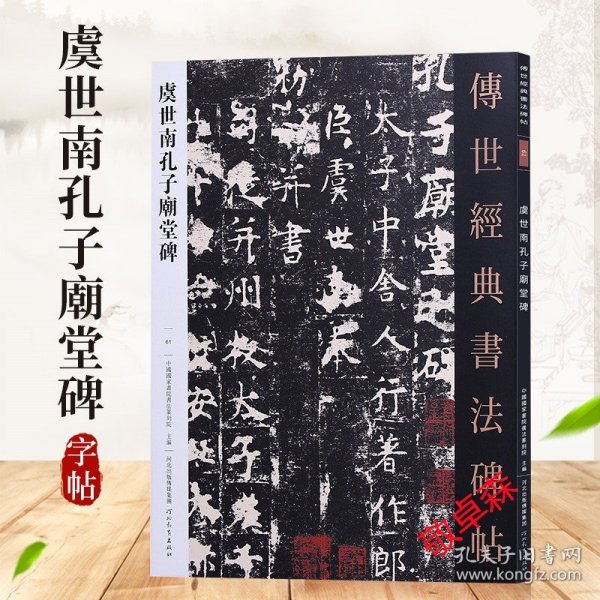 虞世南孔子廟堂碑
字帖
虞世南孔子廟堂碑
61
中國國家書院書法篆刻院 主編
河北出版傳媒集團
河北教育出版社
孔子廟堂之碑
太子中舍人行著作郎
臣虞世南
勑
并書
并州
太子
安
傳世經典書法碑帖
傳世經典書法碑帖
61
虞世南孔子廟堂碑
中國國家書院書法篆刻院 主編
河北出版傳媒集團
河北教育出版社
敬卓森
孔夫子旧书网
www.kongfz.com